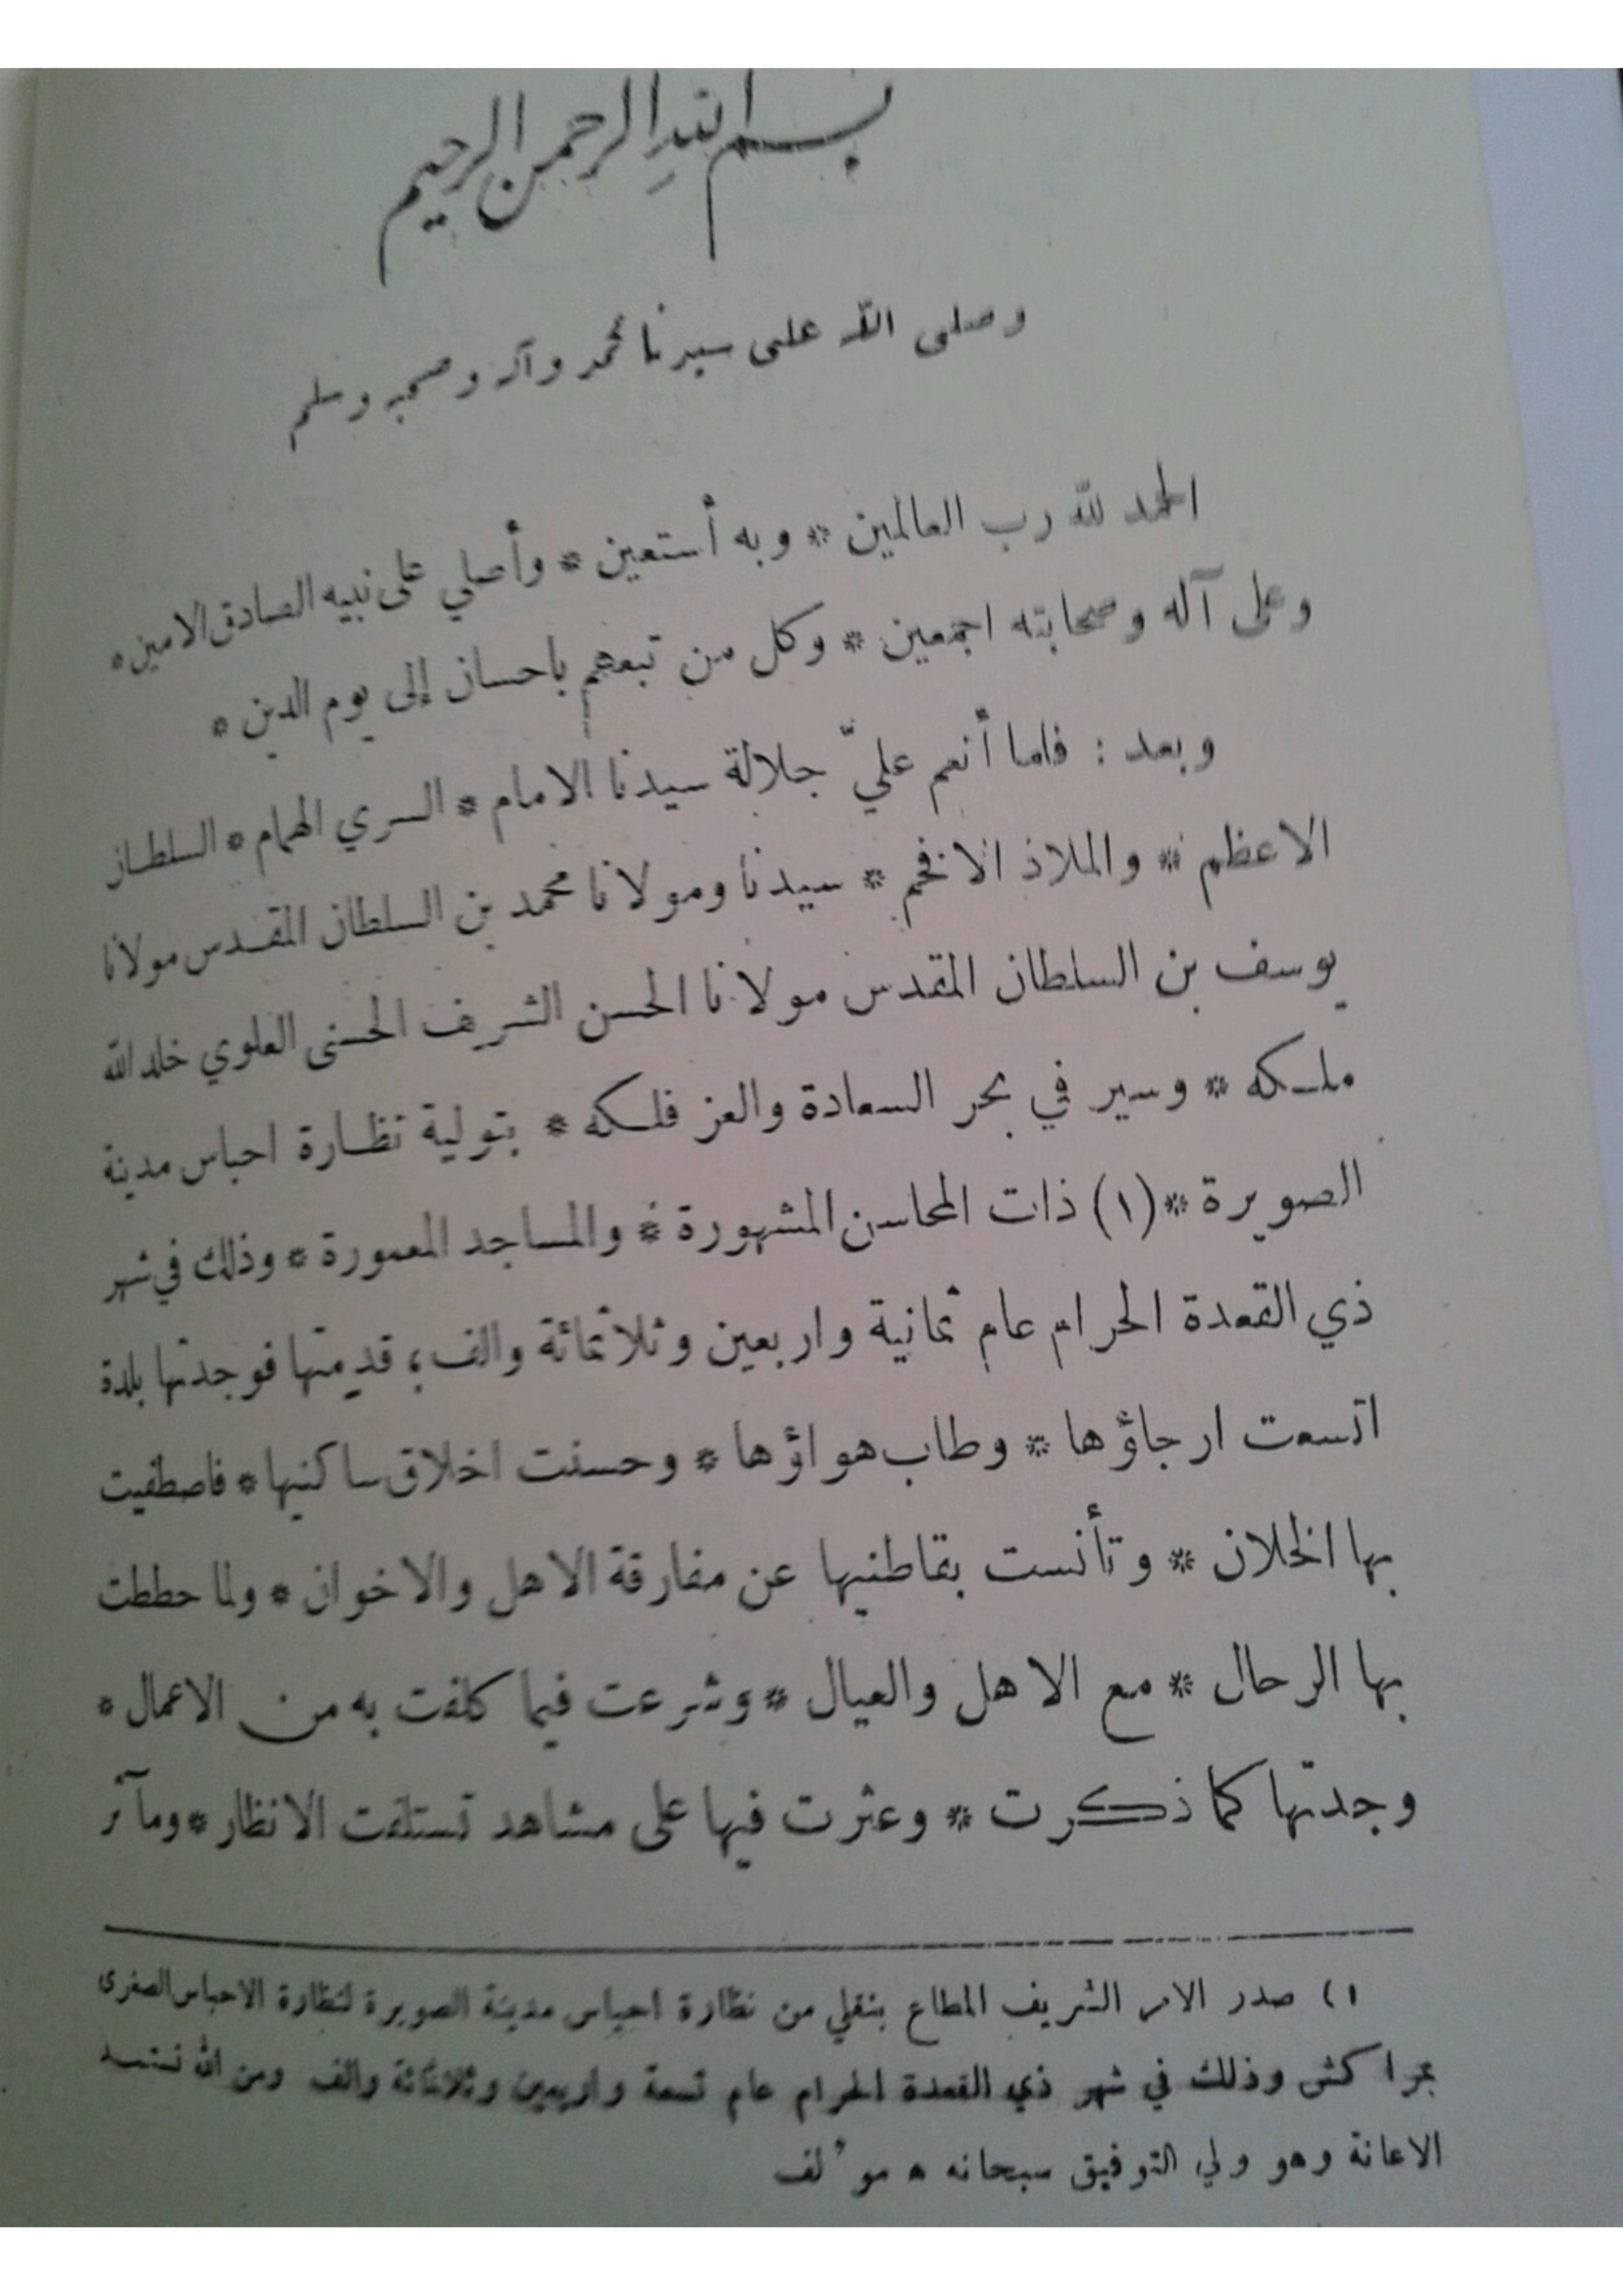 بسم الله الرحمن الرحيم
وصلى الله على سيدنا محمد وآله وصحبه وسلم
الحمد لله رب العالمين * وبه أستعين * وأصلي على نبيه الصادق الامين *
وعلى آله وصحابته اجمعين * وكل من تبعهم باحسان إلى يوم الدين *
وبعد : فلما أنعم عليّ جلالة سيدنا الامام * السري الهمام * السلطان
الاعظم * والملاذ الافخم * سيدنا ومولانا محمد بن السلطان المقدس مولانا
يوسف بن السلطان المقدس مولانا الحسن الشريف الحسنى العلوي خلد الله
ملكه * وسير في بحر السعادة والعز فلكه * بتولية نظارة احباس مدينة
الصويرة * (١) ذات المحاسن المشهورة * والمساجد المعمورة * وذلك في شهر
ذي القعدة الحرام عام ثمانية واربعين وثلاثمائة والف ؛ قدمتها فوجدتها بلدة
اتسعت ارجاؤها * وطاب هواؤها * وحسنت اخلاق ساكنيها * فاصطفيت
بها الخلان * وتأنست بقاطنيها عن مفارقة الاهل والاخوان * ولما حططت
بها الرحال * مع الاهل والعيال * وشرعت فيما كلفت به من الاعمال *
وجدتها كما ذكرت * وعثرت فيها على مشاهد تستلفت الانظار * ومآثر
١) صدر الامر الشريف المطاع بنقلي من نظارة احباس مدينة الصويرة لنظارة الاحباس الصغرى
بمراكش وذلك في شهر ذي القعدة الحرام عام تسعة واربعين وثلاثمائة والف ومن الله نستمد
الاعانة وهو ولي التوفيق سبحانه * مؤلف